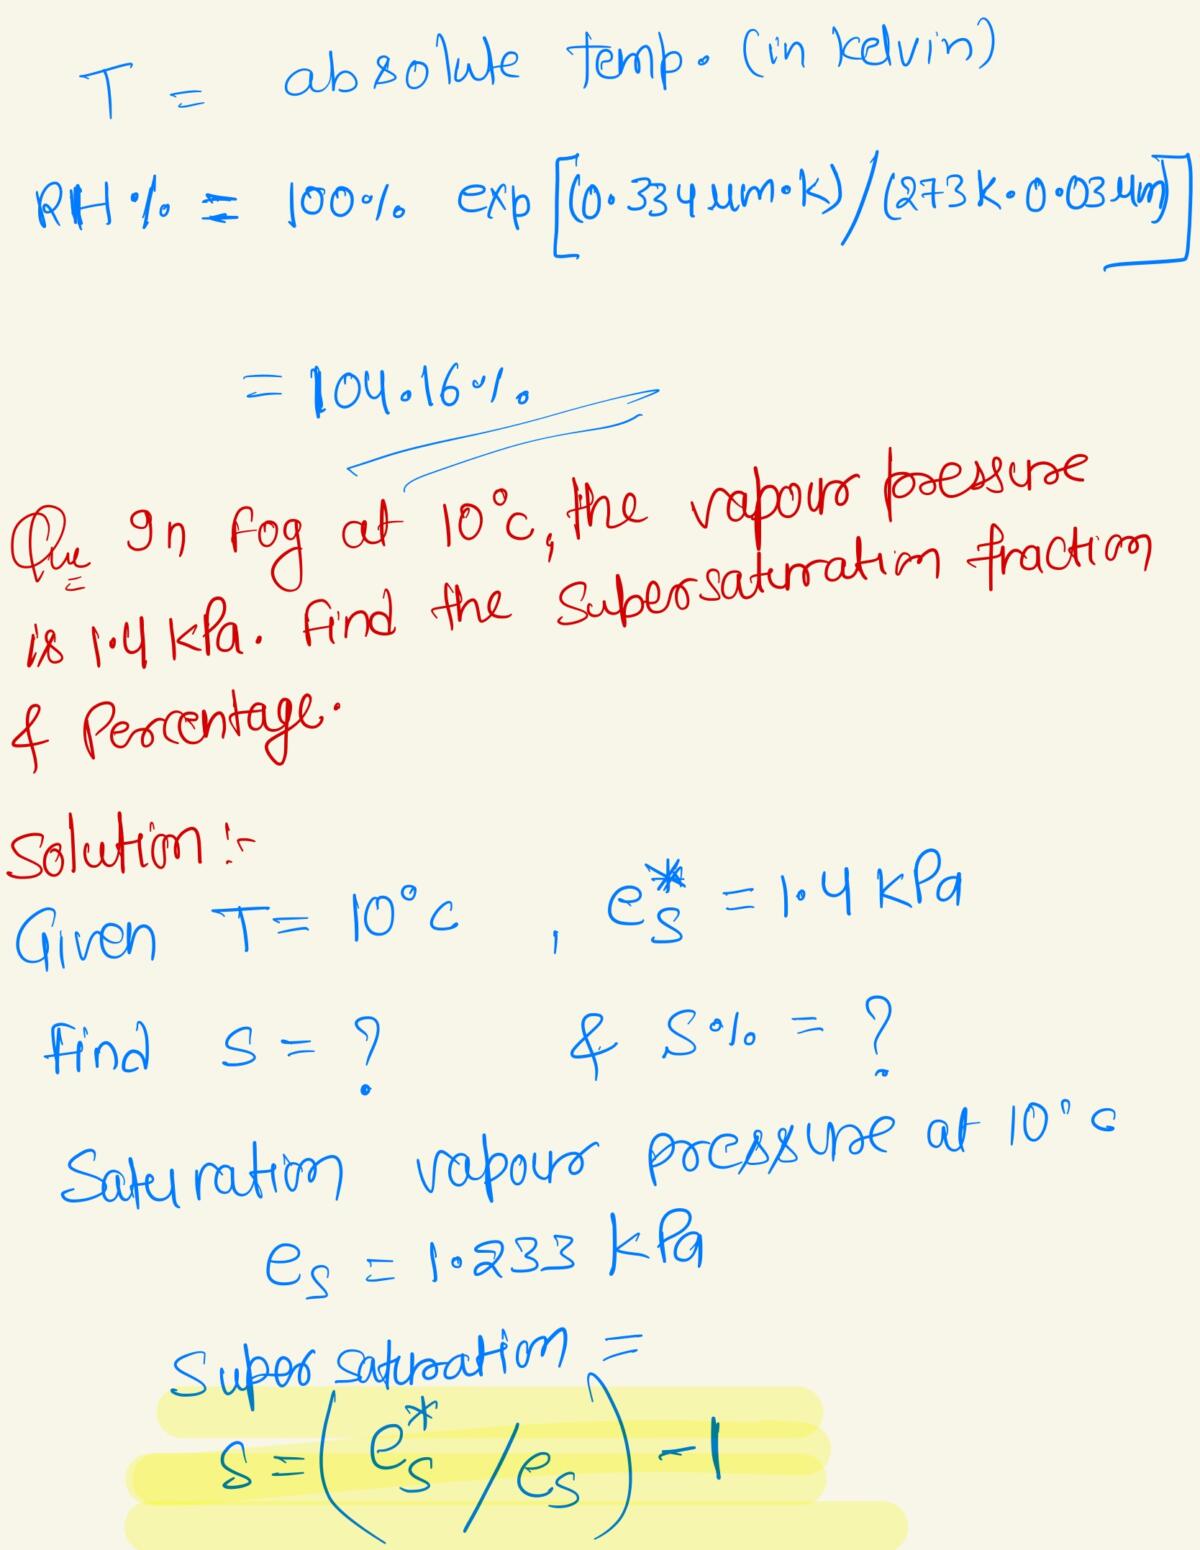 T = absolute temp. (in kelvin)
RH % = 100% exp [(0.334 μm·K)/(273K·0.03μm)]
= 104.16%
Que In fog at 10°C, the vapour pressure
is 1.4 kPa. Find the Supersaturation fraction
& Percentage.
Solution :-
Given T = 10°C , e*s = 1.4 kPa
Find S = ? & S% = ?
Saturation vapour pressure at 10°C
es = 1.233 kPa
Super saturation =
S = (e*s / es) - 1